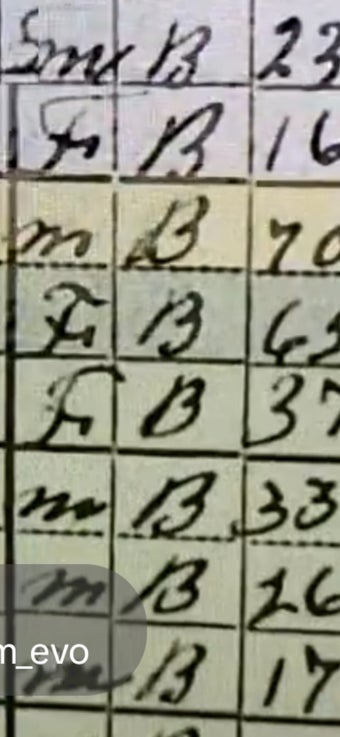 m B 23
F B 16
m B 70
F B 65
F B 37
m B 33
m B 26
m B 17
m_evo